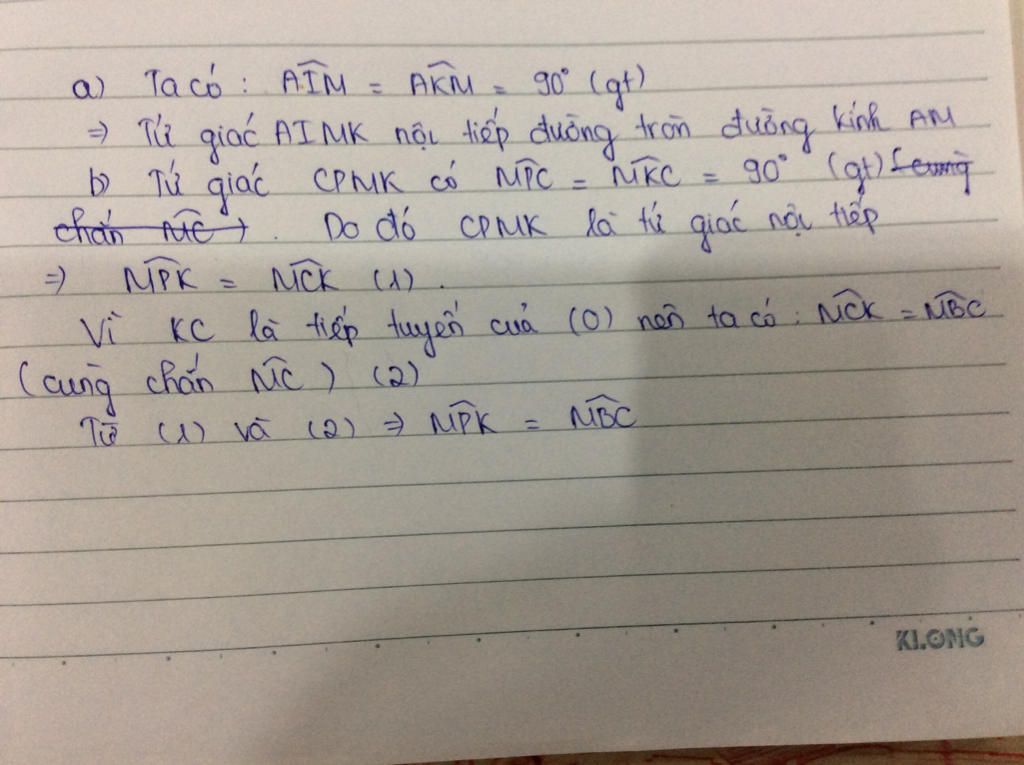 a) Ta có : AIM = AKM = 90° (gt)
=> Tứ giác AIMK nội tiếp đường tròn đường kính AM
b) Tứ giác CPMK có MPC = MKC = 90° (gt) (cùng
chắn MC) . Do đó CPMK là tứ giác nội tiếp
=> MPK = MCK (1) .
Vì KC là tiếp tuyến của (O) nên ta có : MCK = MBC
(cùng chắn MC) (2)
Từ (1) và (2) => MPK = MBC
KLONG